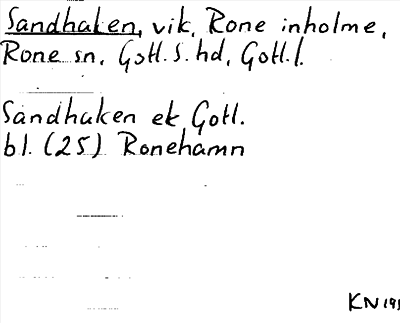 Sandhaken, vik, Rone inholme,
Rone sn, Gotl. S. hd, Gotl. l.
Sandhaken ek Gotl.
bl. (25) Ronehamn
KN